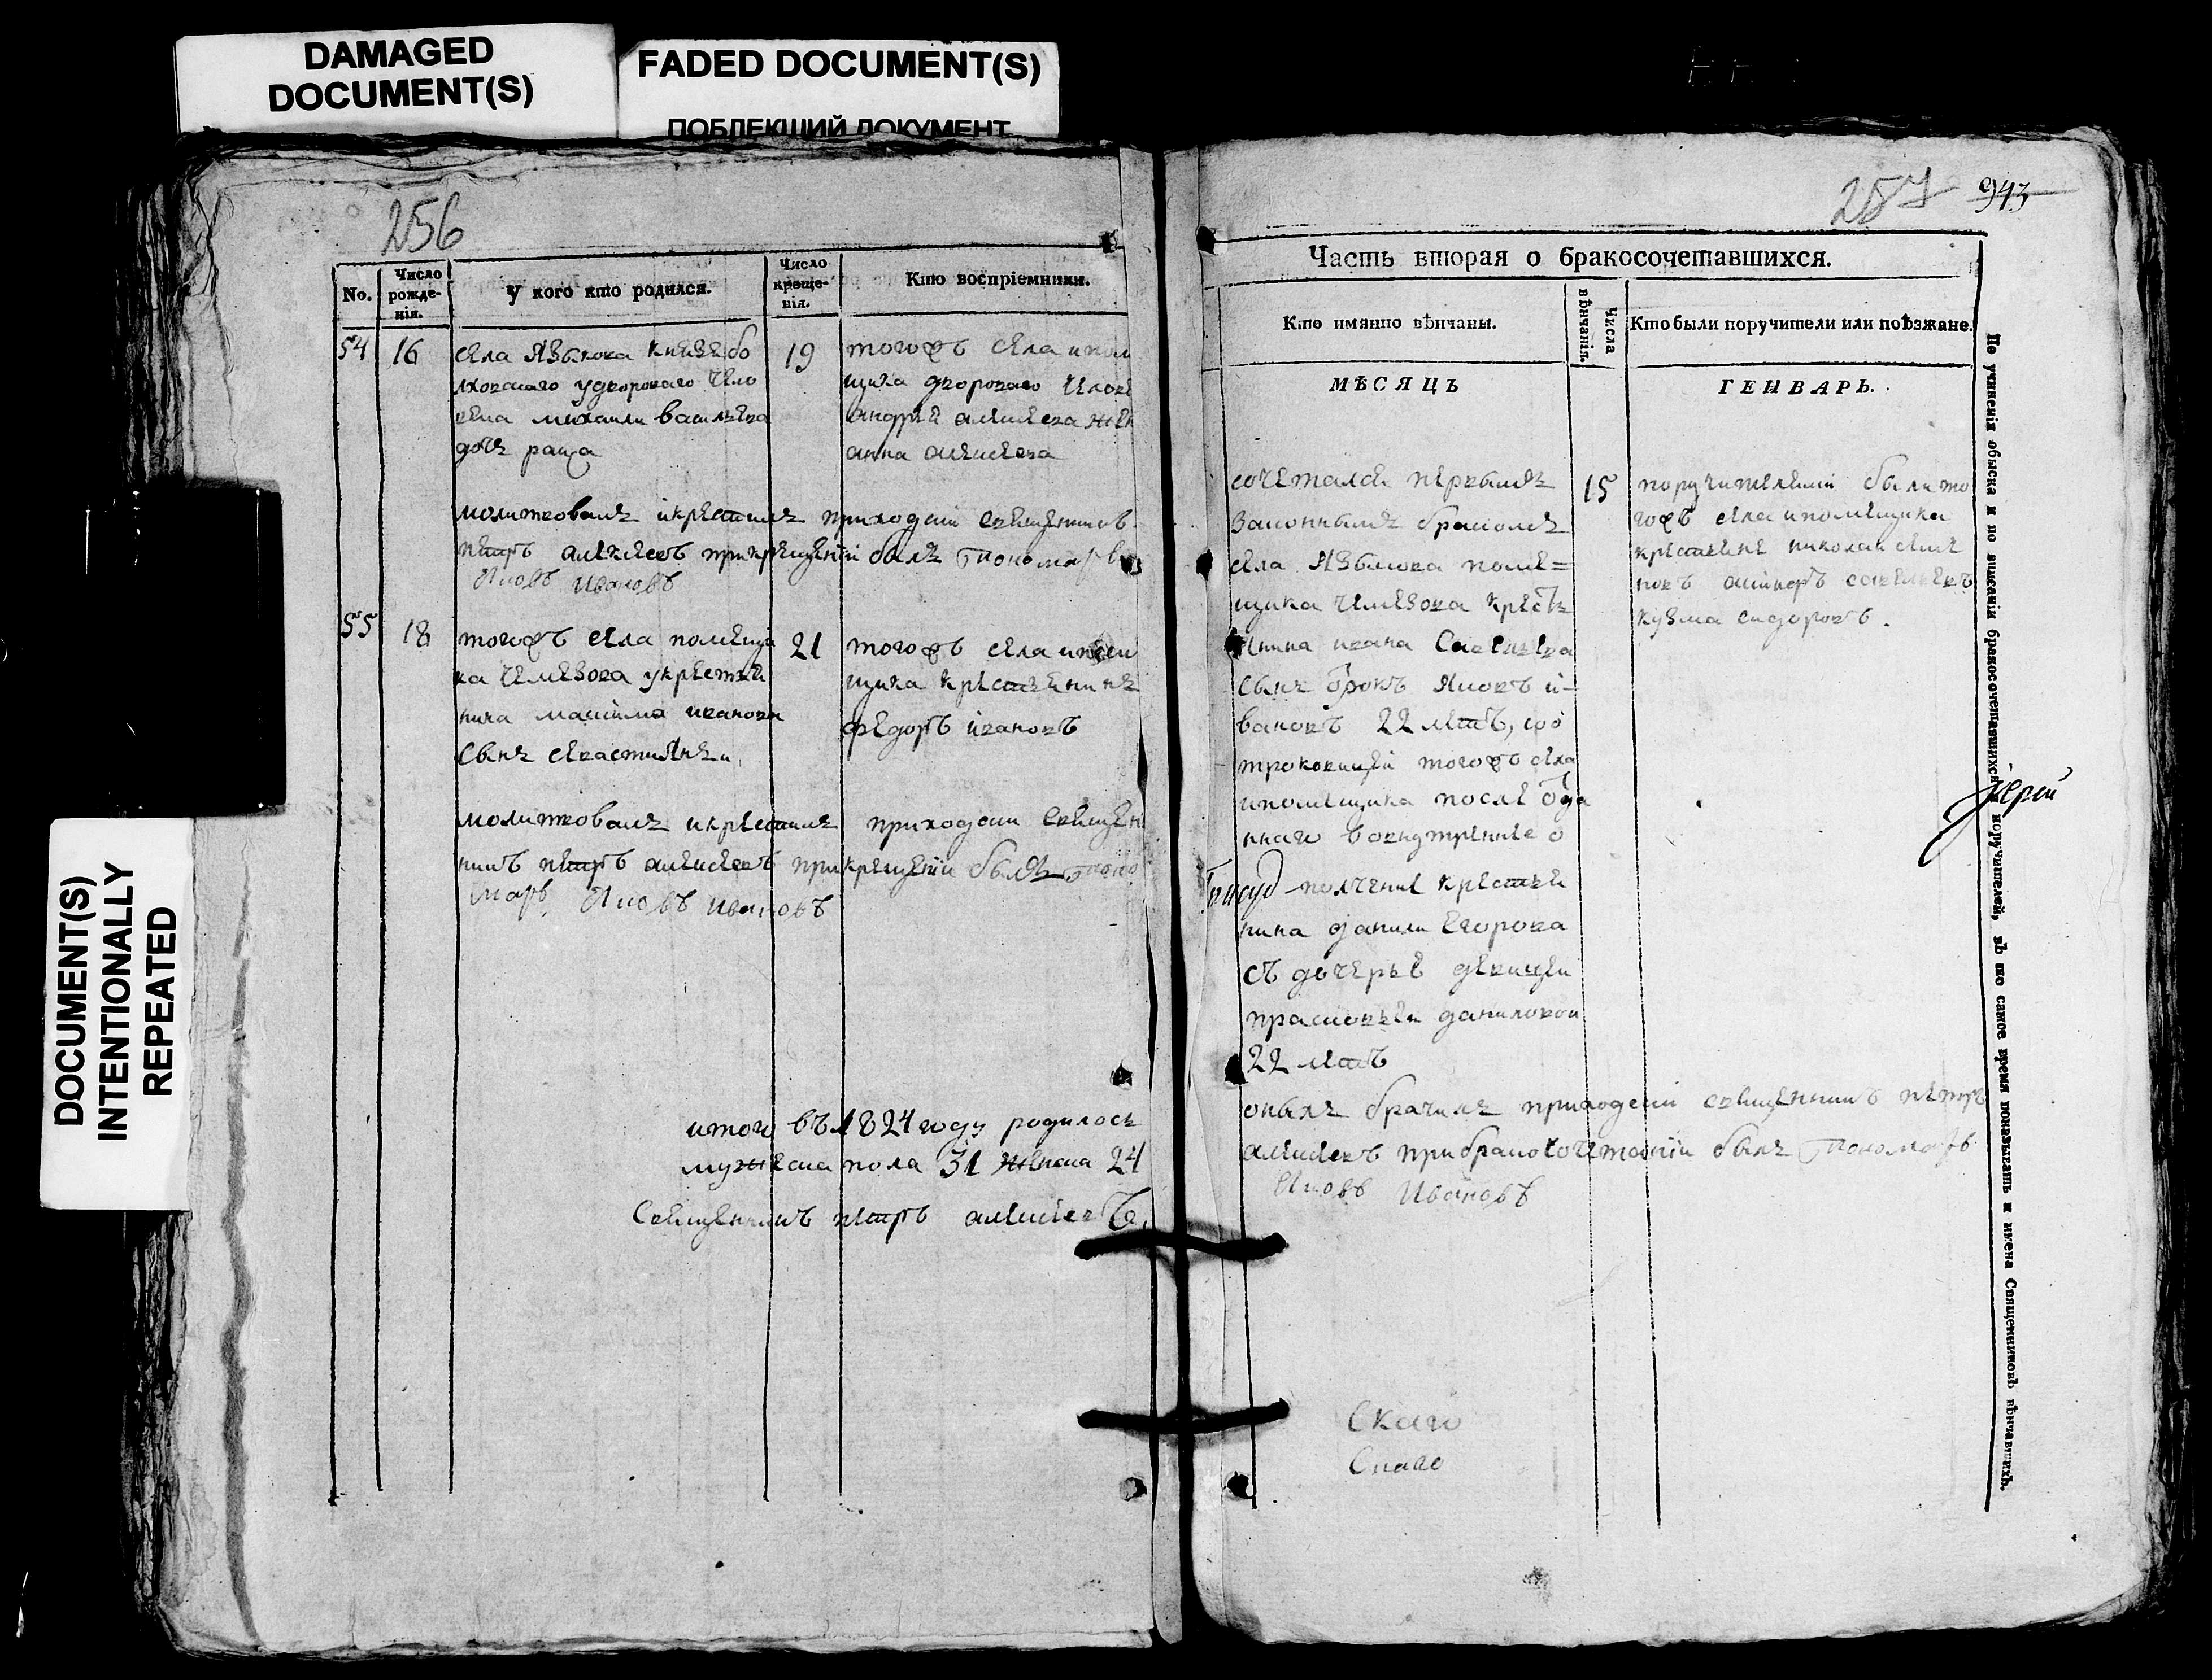 DAMAGED
DOCUMENT(S)
FADED DOCUMENT(S)
ПОБЛЕКШИЙ ДОКУМЕНТ
DOCUMENT(S)
INTENTIONALLY
REPEATED
256
No.
Число рожде-нія.
У кого кто родился.
Число креще-нія.
Кто воспріемники.
54 16
села Языкова
дворового чело
века михаили васильева
дочь
19
тогожъ села и поме
щика дворового челове
андрей алексеева жен
анна алексеева
молитвовалъ и крестилъ приходской священникъ
петръ алексеевъ при крещеніи былъ пономарь
Яковъ Ивановъ
55 18
тогожъ села помещи
ка у крестья
нина максима иванова
сынъ севастиянъ
21
тогожъ села и помe
щика крестьенинъ
федоръ ивановъ
молитвовалъ и крестилъ приходской священ
никъ петръ алексеевъ при крещеніи былъ поно
марь Яковъ Ивановъ
итого въ 1824 году родилось
мужеска пола 31 женска 24
Священникъ петръ алексеевъ
257 943
Часть вторая о бракосочетавшихся.
Кто имянно вѣнчаны.
Числа вѣнчанія.
Кто были поручители или поѣзжане.
МѢСЯЦЪ
ГЕНВАРЬ.
сочетался первымъ
законнымъ бракомъ
села Языкова поме=
щика кресть
янина ивана Савельева
сынъ отрокъ Яковъ и-
вановъ 22 летъ, со
троковицей тогожъ села
и помещика после
крестья
нина данили Егорова
съ дочерье девицеи
прасковьеи даниловои
22 летъ
15
поручителями были то
гожъ села и помещика
крестьяне николаи семе
новъ савельевъ
кузма сидоровъ.
оныхъ брачилъ приходской священникъ петръ
алексеевъ при бракосочетаніи былъ пономарь
Яковъ Ивановъ
Іерей
По учиненіи обыска и по вписаніи бракосочетавшихся и поручителей, въ то самое время показывать и имена Священниковъ вѣнчавшихъ.